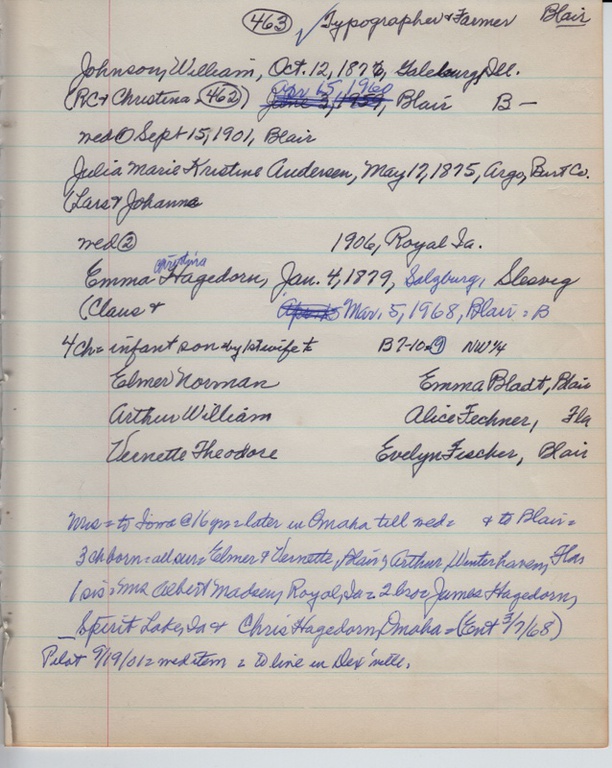 463 ✓ Typographer & Farmer Blair
Johnson, William, Oct. 12, 1876, Galesburg, Ill.
Apr 15, 1960
(RC & Christina, 462) June 3, 1959, Blair B —
wed ① Sept 15, 1901, Blair
Julia Marie Kristine Andersen, May 17, 1875, Argo, Burt Co.
(Lars & Johanne
wed ② 1906, Royal Ia.
Emma Hagedorn, Jan. 4, 1879, Salzburg, Slesvig
(Claus & Mar. 5, 1968, Blair = B
4 ch = infant son by 1st wife & B7-10 NW¼
Elmer Norman Emma Bladt, Blair
Arthur William Alice Fechner, Fla
Vernette Theodore Evelyn Fischer, Blair
Mrs = to Iowa @ 16 yrs = later in Omaha till wed = & to Blair =
3 ch born = all sur = Elmer & Vernette, Blair, Arthur, Winterhaven, Fla
1 sis = Mrs Albert Madsen, Royal, Ia = 2 bro = James Hagedorn,
Spirit Lake, Ia & Chris Hagedorn, Omaha = (Ent 3/7/68)
Pilot 9/19/01 = wed item = to live in Dex'ville.